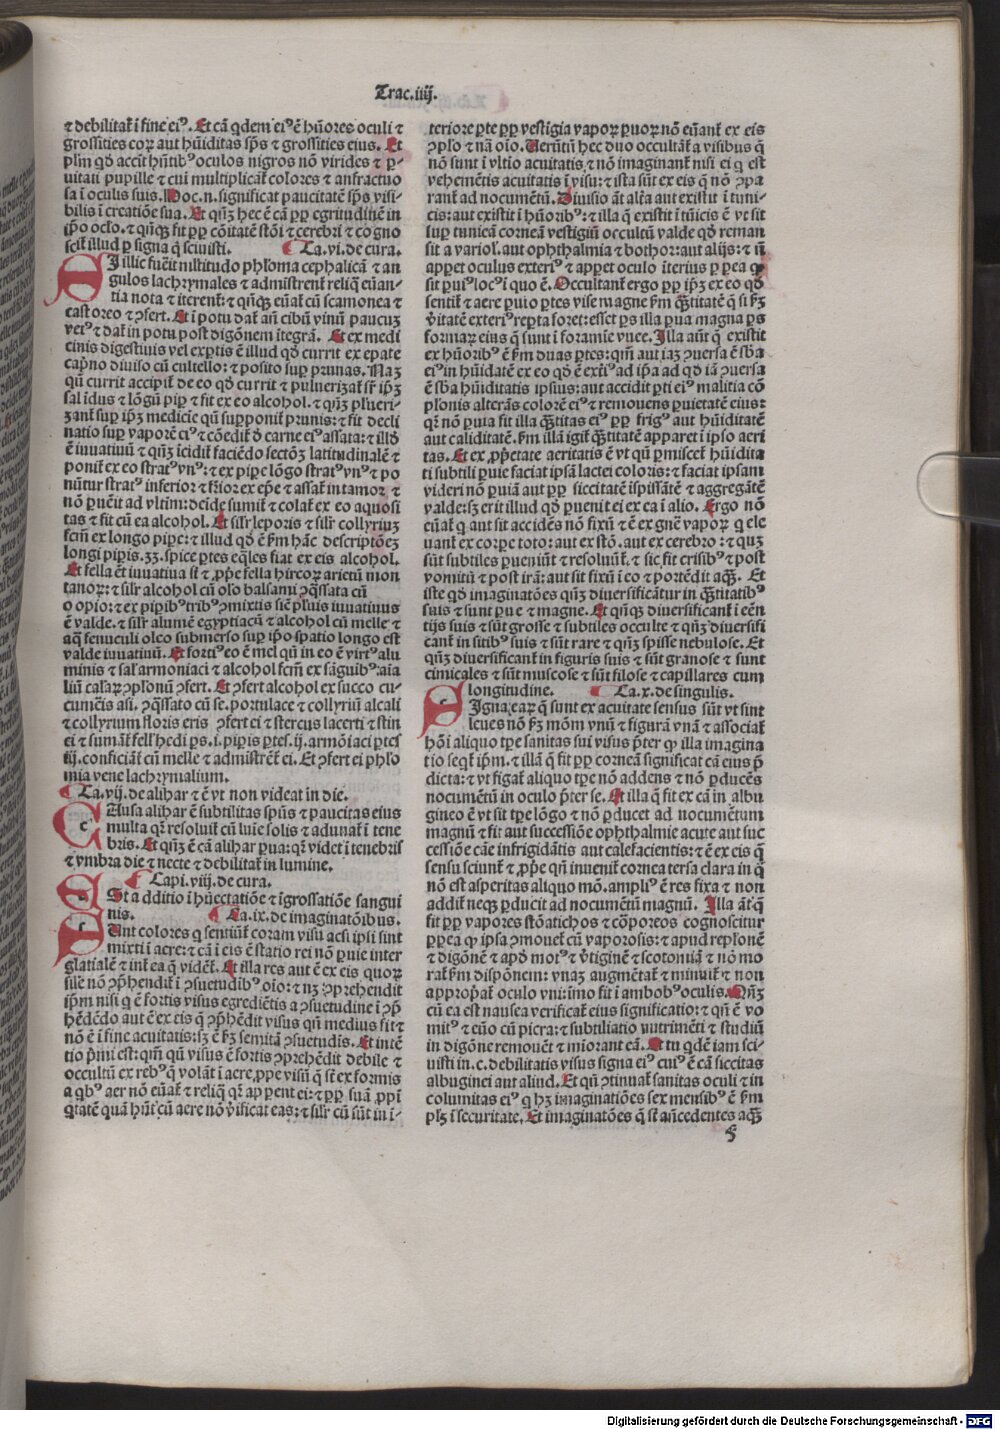 Trac.iiij.
⁊ debilitat̃ ĩ fine ei⁹. Et cã qdem ei⁹ ẽ hũores oculi ⁊
grossities coꝝ aut hũiditas sp̃s ⁊ grossities eius. Et
pl̃m qđ accit hũtib⁹ oculos nigros nõ virides ⁊ p̱-
uitati pupille ⁊ cui multiplicat̃ colores ⁊ anfractuo
sa ĩ oculis suis. Hoc.n. significat paucitatẽ sp̃s visi-
bilis ĩ creatiõe sua. Et qũꝫ hec ẽ cã ꝑp egritudinẽ in
ip̃o oc̃lo. ⁊ qñqꝫ fit ꝑp cõitatẽ stõi ⁊ cerebri ⁊ cogno
scit̃ illud ꝑ signa q̃ sciuisti.
Ca.vi. de cura.
SI illic fuẽit ml̃titudo phl̃oma cephalicã ⁊ an
gulos lachrymales ⁊ admistrent̃ reliq̃ euãn-
tia nota ⁊ iterent̃: ⁊ qñqꝫ euãt̃ cũ scamonea ⁊
castoreo ⁊ ꝯfert. Et ĩ potu dat̃ añ cibũ vinũ paucuꝫ
vet⁹ ⁊ dat̃ in potu post digõnem ĩtegrã. Et ex medi
cinis digestiuis vel exꝑtis ẽ illud qđ currit ex epate
cap̃no diuiso cũ cultello: ⁊ posito suꝑ prunas. Naꝫ
qũ currit accipit̃ de eo qđ currit ⁊ pulueriꝫat̃ sr̃ ip̃ꝫ
sal ĩdus ⁊ lõgũ pip̱ ⁊ fit ex eo alcohol. ⁊ qñꝫ pl̃ueri-
ꝫant̃ suꝑ ip̃ꝫ medicie qũ supponit̃ prunis: ⁊ fit decli
natio suꝑ vaporẽ ei⁹ ⁊ cõedit̃ đ carne ei⁹ assata: ⁊ illđ
ẽ iuuatiuũ ⁊ qñꝫ ĩcidit̃ faciẽdo sectõꝫ latitudinalẽ ⁊
ponit̃ ex eo strat⁹ vn⁹: ⁊ ex pipe lõgo strat⁹ vn⁹ ⁊ po
nũtur strat⁹ inferior ⁊ ꝑior ex ep̃e ⁊ assat̃ in tamor ⁊
nõ ꝑuẽit ad vltim: deide sumit̃ ⁊ colat̃ ex eo aquosi
tas ⁊ fit cũ ea alcohol. Et sil̃r leporis ⁊ sil̃r collyriuꝫ
fcm̃ ex longo pipe: ⁊ illud qđ ẽ ẝm hãc descriptõeꝫ
longi piꝑis. ꝫꝫ. spice ꝑtes eq̃les fiat ex eis alcohol.
Et fella ẽt iuuatiua st̃ ⁊ ꝓp̃e fella hircoꝝ arietũ mon
tanoꝝ: ⁊ sil̃r alcohol cũ olo balsami ꝯq̃ssata cũ
o opio: ⁊ ex pipib⁹ trib⁹ ꝯmixtis siẽ pl̃uis iuuatinus
ẽ valde. ⁊ sil̃r alumẽ egyptiacũ ⁊ alcohol cũ melle ⁊
aq̃ fenuculi oleo submerso suꝑ ip̃o spatio longo est
valde iuuatiuũ. Et forti⁹ eo ẽ mel qũ in eo ẽ virt⁹ alu
minis ⁊ sal̃ armoniaci ⁊ alcohol fcm̃ ex sãguib⁹: aĩa
liũ calaꝝ ꝯplonũ ꝯfert. Et ꝯfert alcohol ex succo cu-
cumeris asi. ꝯq̃ssato cũ se. portulace ⁊ collyriũ alcali
⁊ collyrium floris eris ꝯfert ei ⁊ stercus lacerti ⁊ stin
ci ⁊ sumat̃ fell̃ hedi ps. i. pipis ꝑtes. ij. armõiaci ꝑtes
iij. conficiãt̃ cũ melle ⁊ admistrẽt̃ ei. Et ꝯfert ei phl̃o
mia vene lachrymalium.
Ca. vij. de alihar ⁊ ẽ vt non videat in die.
CAusa alihar ẽ subtilitas spũs ⁊ paucitas eius
multa qꝛ resoluit̃ cũ luĩe solis ⁊ adunat̃ ĩ tene
bris. Et qñꝫ ẽ cã alihar ꝑua: qꝛ videt ĩ tenebris
⁊ vmbra die ⁊ necte ⁊ debilitat̃ in lumine.
Capi. viij. de cura.
ESt additio ĩ hũectatiõe ⁊ ĩgrossatiõe sangui
nis.
Ca. ix. de imaginatõibus.
SUnt colores q̃ sentiũt̃ coram visu acsi ipsi sint
mixti ĩ aere: ⁊ cã ĩ eis ẽ statio rei nõ ꝑuie inter
glatialẽ ⁊ int̃ ea q̃ vidẽt̃. Et illa res aut ẽ ex eis quoꝝ
sile nõ ꝯp̃hendit̃ ĩ ꝯsuetudib⁹ oĩo: ⁊ nꝫ ꝯprehendit
ip̃m nisi q̃ ẽ fortis visus egrediẽtis a ꝯsuetudine ĩ ꝯp̃
hẽdẽdo aut ẽ ex eis q̃ ꝯp̃hẽdit visus qũ medius fit ⁊
nõ ẽ ĩ fine acuitatis: sꝫ ẽ ẝꝫ semitã ꝯsuetudis. Et intẽ
tio p̃mi est: qm̃ qũ visus ẽ fortis ꝯprehẽdit debile ⁊
occultũ ex reb⁹ q̃ volãt ĩ aere, ꝓpe visũ q̃ st̃ ex formis
a qb⁹ aer nõ euãt̃ ⁊ reliq̃ qꝛ appent ei: ⁊ ꝑp suã ꝓpi
q̃tatẽ quã hũt cũ aere nõ v̉ificat eas: ⁊ sil̃r cũ sũt in ĩ-
teriore ꝑte ꝑp vestigia vapoꝝ ꝑuoꝝ nõ euãnt̃ ex eis
ꝯplo ⁊ nã oĩo. Verũtñ hec duo occultãt̃ a visibus q̃
nõ sunt ĩ vltio acuitatis ⁊ nõ imaginant̃ nisi ei q̃ est
vehemẽtis acuitatis ĩ visu: ⁊ ista sũt ex eis q̃ nõ ꝯpa
rant̃ ad nocumẽtũ. Diuisio ãt alta aut existit ĩ tuni-
cis: aut existit ĩ hũorib⁹: ⁊ illa q̃ existit ĩ tũicis ẽ vt sit
suꝑ tunicã corneã vestigiũ occultũ valde qđ reman
sit a variol̃. aut ophthalmia ⁊ bothor: aut alijs: ⁊ ñ
appet oculus exteri⁹ ⁊ appet oculo ĩterius ꝑ ꝑea qꝫ
sit ꝑui⁹ loc⁹ ĩ quo ẽ. Occultant̃ ergo ꝑp ip̃ꝫ ex eo qđ
sentit̃ ⁊ aere ꝑuio ꝑtes vise magne ẝm q̃titatẽ q̃ si ẝꝫ
v̉itatẽ exteri⁹ reꝑta foret: esset ps illa ꝑua magna ps
formaꝝ eius q̃ sunt ĩ foramĩe vuee. Illa aũt q̃ existit
ex hũorib⁹ ẽ ẝm duas ꝑtes: qm̃ aut iaꝫ ꝯuersa ẽ sb̃a
ei⁹ in hũidatẽ ex eo qđ ẽ extĩ⁹ ad ip̃a ad qđ iã ꝯuersa
ẽ sb̃a hũiditatis ipsius: aut accidit ꝑti ei⁹ malitia cõ
pl̃onis alterãs colorẽ ei⁹ ⁊ remouens ꝑuietatẽ eius:
qꝛ nõ ꝑuia fit illa q̃titas ei⁹ ꝑp frig⁹ aut hũiditatẽ
aut caliditatẽ. ẝm illã igit̃ q̃titatẽ apparet ĩ ipso aeri
tas. Et ex ꝓp̃etate aeritatis ẽ vt qũ ꝑmiscet̃ hũidita
ti subtili ꝑuie faciat ipsã lactei coloris: ⁊ faciat ipsam
videri nõ ꝑuiã aut ꝑp siccitatẽ ĩspissãtẽ ⁊ aggregãtẽ
valde: sꝫ erit illud qđ ꝑuenit ei ex ea ĩ alio. Ergo nõ
euãt̃ q̃ aut sit accidẽs nõ fixũ ⁊ ẽ ex gñe vapoꝝ q̃ ele
uant̃ ex corꝑe toto: aut ex stõ. aut ex cerebro: ⁊ quꝫ
sũt subtiles ꝑueniũt ⁊ resoluũt̃. ⁊ sic fit crisib⁹ ⁊ post
vomitũ ⁊ post irã: aut sit fixũ ĩ eo ⁊ portẽdit aq̃ꝫ. Et
iste qđ imaginatões qũꝫ diuersificãtur in q̃titatib⁹
suis ⁊ sunt ꝑue ⁊ magne. Et qñqꝫ diuersificant̃ ĩ eẽn
tijs suis ⁊ sũt grosse ⁊ subtiles occulte ⁊ qũꝫ diuersifi
cant̃ in sitib⁹ suis ⁊ sũt rare ⁊ qũꝫ spisse nebulose. Et
qũꝫ diuersificant̃ in figuris suis ⁊ sũt granose ⁊ sunt
cimicales ⁊ sũt muscose ⁊ sũt filose ⁊ capillares cum
longitudine.
Ca.x. de singulis.
SIgna: eaꝝ q̃ sunt ex acuitate sensus sũt vt sint
leues nõ ẝꝫ mõm vnũ ⁊ figurã vnã ⁊ associat̃
hõĩ aliquo tp̃e sanitas sui visus p̃ter qꝫ illa imagina
tio seqt̃ ip̃m. ⁊ illã q̃ fit ꝑp corneã significat cã eius p̃
dicta: ⁊ vt figat̃ aliquo tp̃e nõ addens ⁊ nõ ꝑducẽs
nocumẽtũ in oculo p̃ter se. Et illa q̃ fit ex cã in albu
gineo ẽ vt sit tp̃e lõgo ⁊ nõ ꝑducet ad nocumẽtum
magnũ ⁊ fit aut successiõe ophthalmie acute aut suc
cessiõe cãe infrigidãtis aut calefacientis: ⁊ ẽ ex eis q̃
sensu sciunt̃ ⁊ ꝓp̃e qñ inuenit̃ cornea tersa clara in q̃
nõ est asperitas aliquo mõ. ampli⁹ ẽ res fixa ⁊ non
addit̃ neqꝫ ꝑducit ad nocumẽtũ magnũ. Illa ãt q̃
fit ꝑp vapores stõatichos ⁊ cõporeos cognoscitur
ꝑpea qꝫ ipsa ꝯmouet̃ cũ vaporosis: ⁊ apud replonẽ
⁊ digõnẽ ⁊ apđ mot⁹ ⁊ v̉tiginẽ ⁊ scotomiã ⁊ nõ mo
rat̃ ẝm disponem: vnaꝫ augmẽtat̃ ⁊ minuit̃ ⁊ non
appropãt oculo vni: imo fit ĩ ambob⁹ oculis. Qñꝫ
cũ ea est nausea verificat̃ eius significatio: ⁊ qñ ẽ vo
mit⁹ ⁊ euõ cũ picra: ⁊ subtiliatio nutrimẽti ⁊ studiũ
in digõne remouẽt ⁊ mĩorant eã. Et tu qđẽ iam sci-
uisti in. c. debilitatis visus signa ei⁹ cui⁹ ẽ cã siccitas
albuginei aut aliud. Et qũ ꝯtinuat̃ sanitas oculi ⁊ in
columitas ei⁹ q̃ hꝫ imaginatiões sex mensib⁹ ẽ ẝm
pl̃ꝫ ĩ securitate. Et imaginatões q̃ st̃ añcedentes aq̃ꝫ
ꝯ
Digitalisierung gefördert durch die Deutsche Forschungsgemeinschaft - DFG